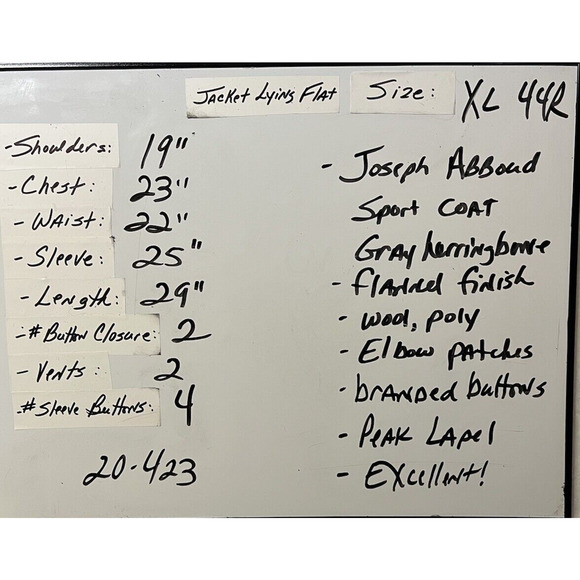 Jacket Lying Flat
Size: XL 44R
- Shoulders: 19"
- Chest: 23"
- Waist: 22"
- Sleeve: 25"
- Length: 29"
- # Button Closure: 2
- Vents: 2
# Sleeve Buttons: 4
20-423
- Joseph Abboud
Sport Coat
Gray herringbone
- flannel finish
- wool, poly
- Elbow patches
- branded buttons
- Peak Lapel
- Excellent!